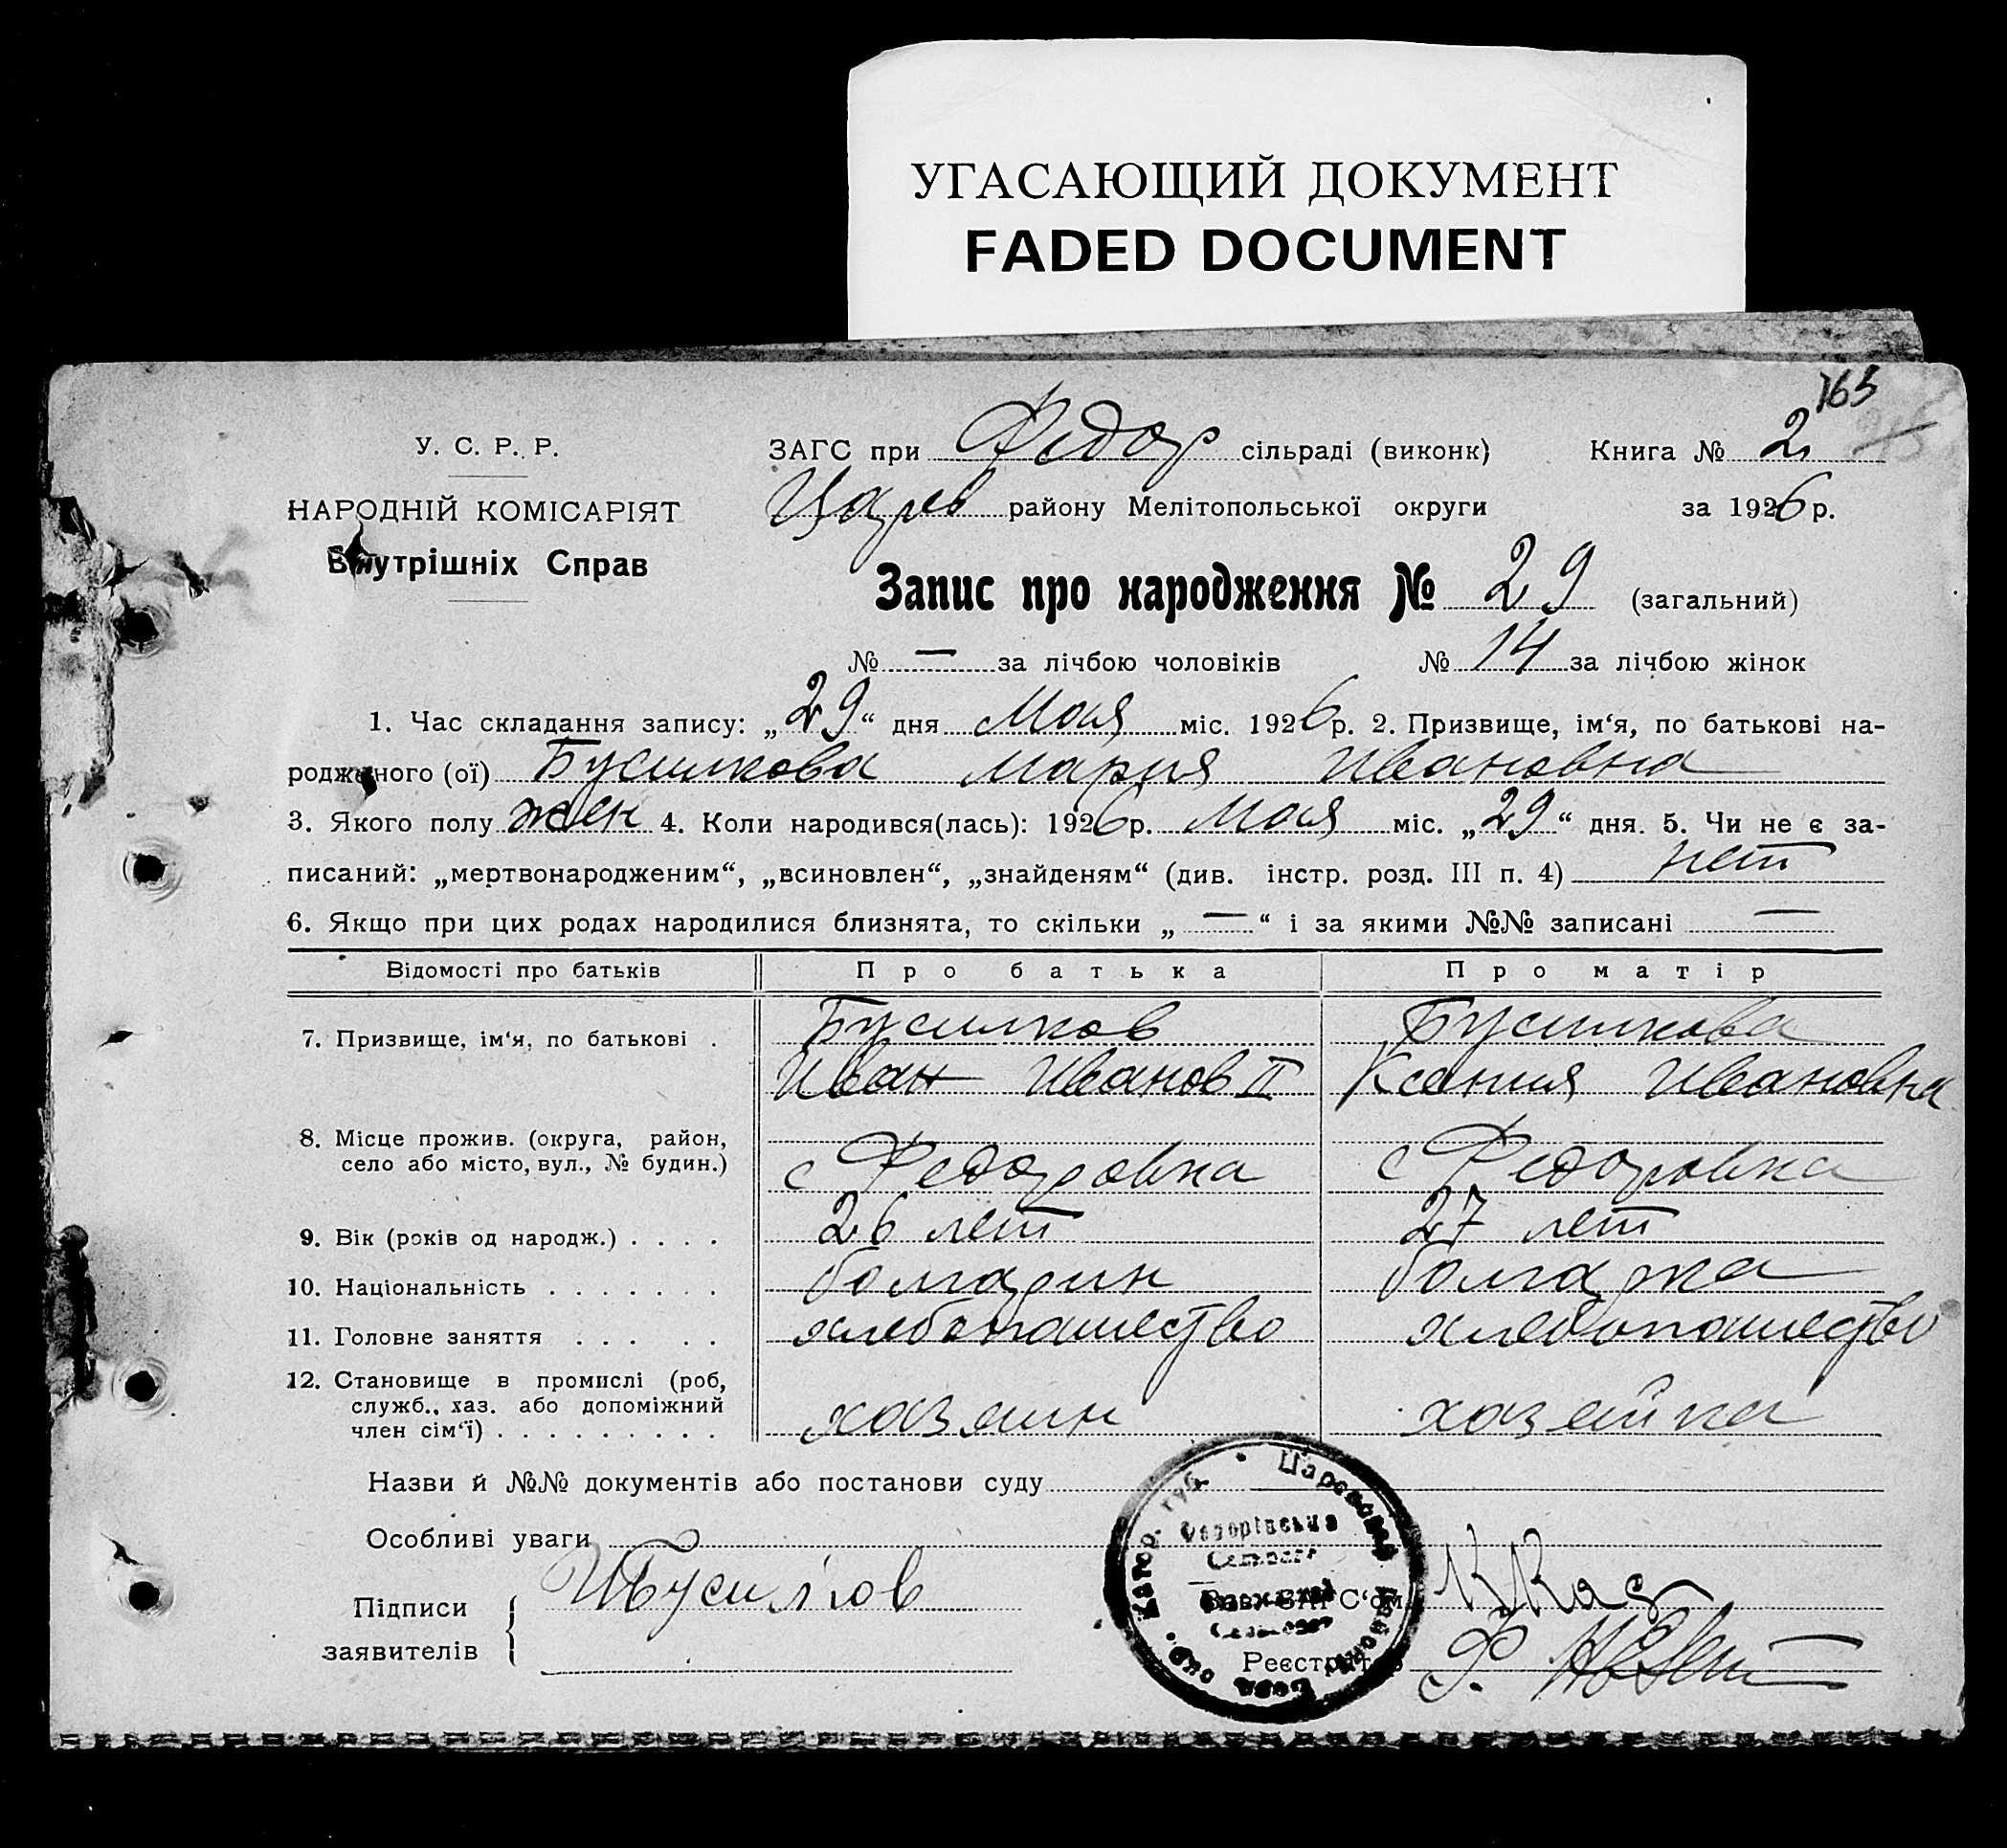 УГАСАЮЩИЙ ДОКУМЕНТ
FADED DOCUMENT
165
У. С. Р. Р.
ЗАГС при Федор сільраді (виконк) Книга № 2
НАРОДНІЙ КОМІСАРІЯТ
Царев району Мелітопольської округи за 1926 р.
Внутрішніх Справ
Запис про народження № 29 (загальний)
№ — за лічбою чоловіків № 14 за лічбою жінок
1. Час складання запису: „29“ дня Мая міс. 1926 р. 2. Призвище, ім‘я, по батькові на-
родженого (ої) Бусилкова Мария Ивановна
3. Якого полу жен 4. Коли народився(лась): 1926 р. Мая міс. „29“ дня. 5. Чи не є за-
писаний: „мертвонародженим“, „всиновлен“, „знайденям“ (див. інстр. розд. III п. 4) нет
6. Якщо при цих родах народилися близнята, то скільки „—“ і за якими №№ записані —
Відомості про батьків Про батька Про матір
Бусилков Бусилкова
7. Призвище, ім‘я, по батькові .
Иван Иванов II Ксения Ивановна
8. Місце прожив. (округа, район,
село або місто, вул., № будин.) с Федоровка с Федоровка
9. Вік (років од народж.) . . . . 26 лет 27 лет
10. Національність . . . . . . . болгарин болгарка
11. Головне заняття . . . . . хлебопашество хлебопашество
12. Становище в промислі (роб,
служб., хаз. або допоміжний
член сім‘ї) . . . . . . . . . хазяин хазяйка
Назви й №№ документів або постанови суду
Особливі уваги
Підписи
заявителів
ИБусилков
Зав. ЗАГС‘ом
Реєстратор